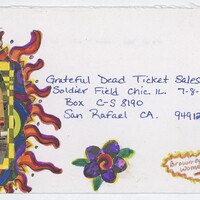 Grateful Dead Ticket Sales
Soldier Field Chic. IL. 7-8-
Box C-S 8190
San Rafael CA. 9491